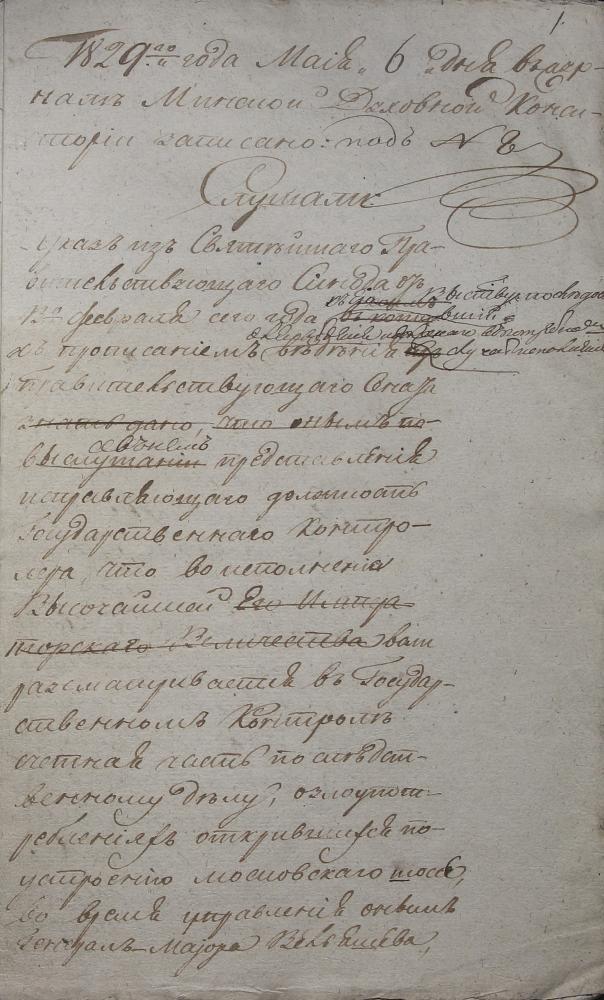 1.
1829го года Маія 6 дня въ жур-
налѣ Минской Духовной Конси-
сторіи записано: подъ №
Слушали:
Указъ изъ Святѣйшаго Пра-
вительствующаго Синода отъ
февраля сего года
съ прописаніемъ вѣдѣнія
Правительствующаго Сената
знать дано, что онымъ по
выслушаніи представленія
исправляющаго должность
Государственнаго Контро-
лера, что во исполненіе
Высочайшей Его Импера-
торскаго Величества воли
разсматривается въ Государ-
ственномъ Контролѣ
счетная часть по слѣдст-
венному дѣлу, о злоупот-
ребленіяхъ открывшихся по
устроенію московскаго шосе,
во время управленія онымъ
Генералъ-Маіора